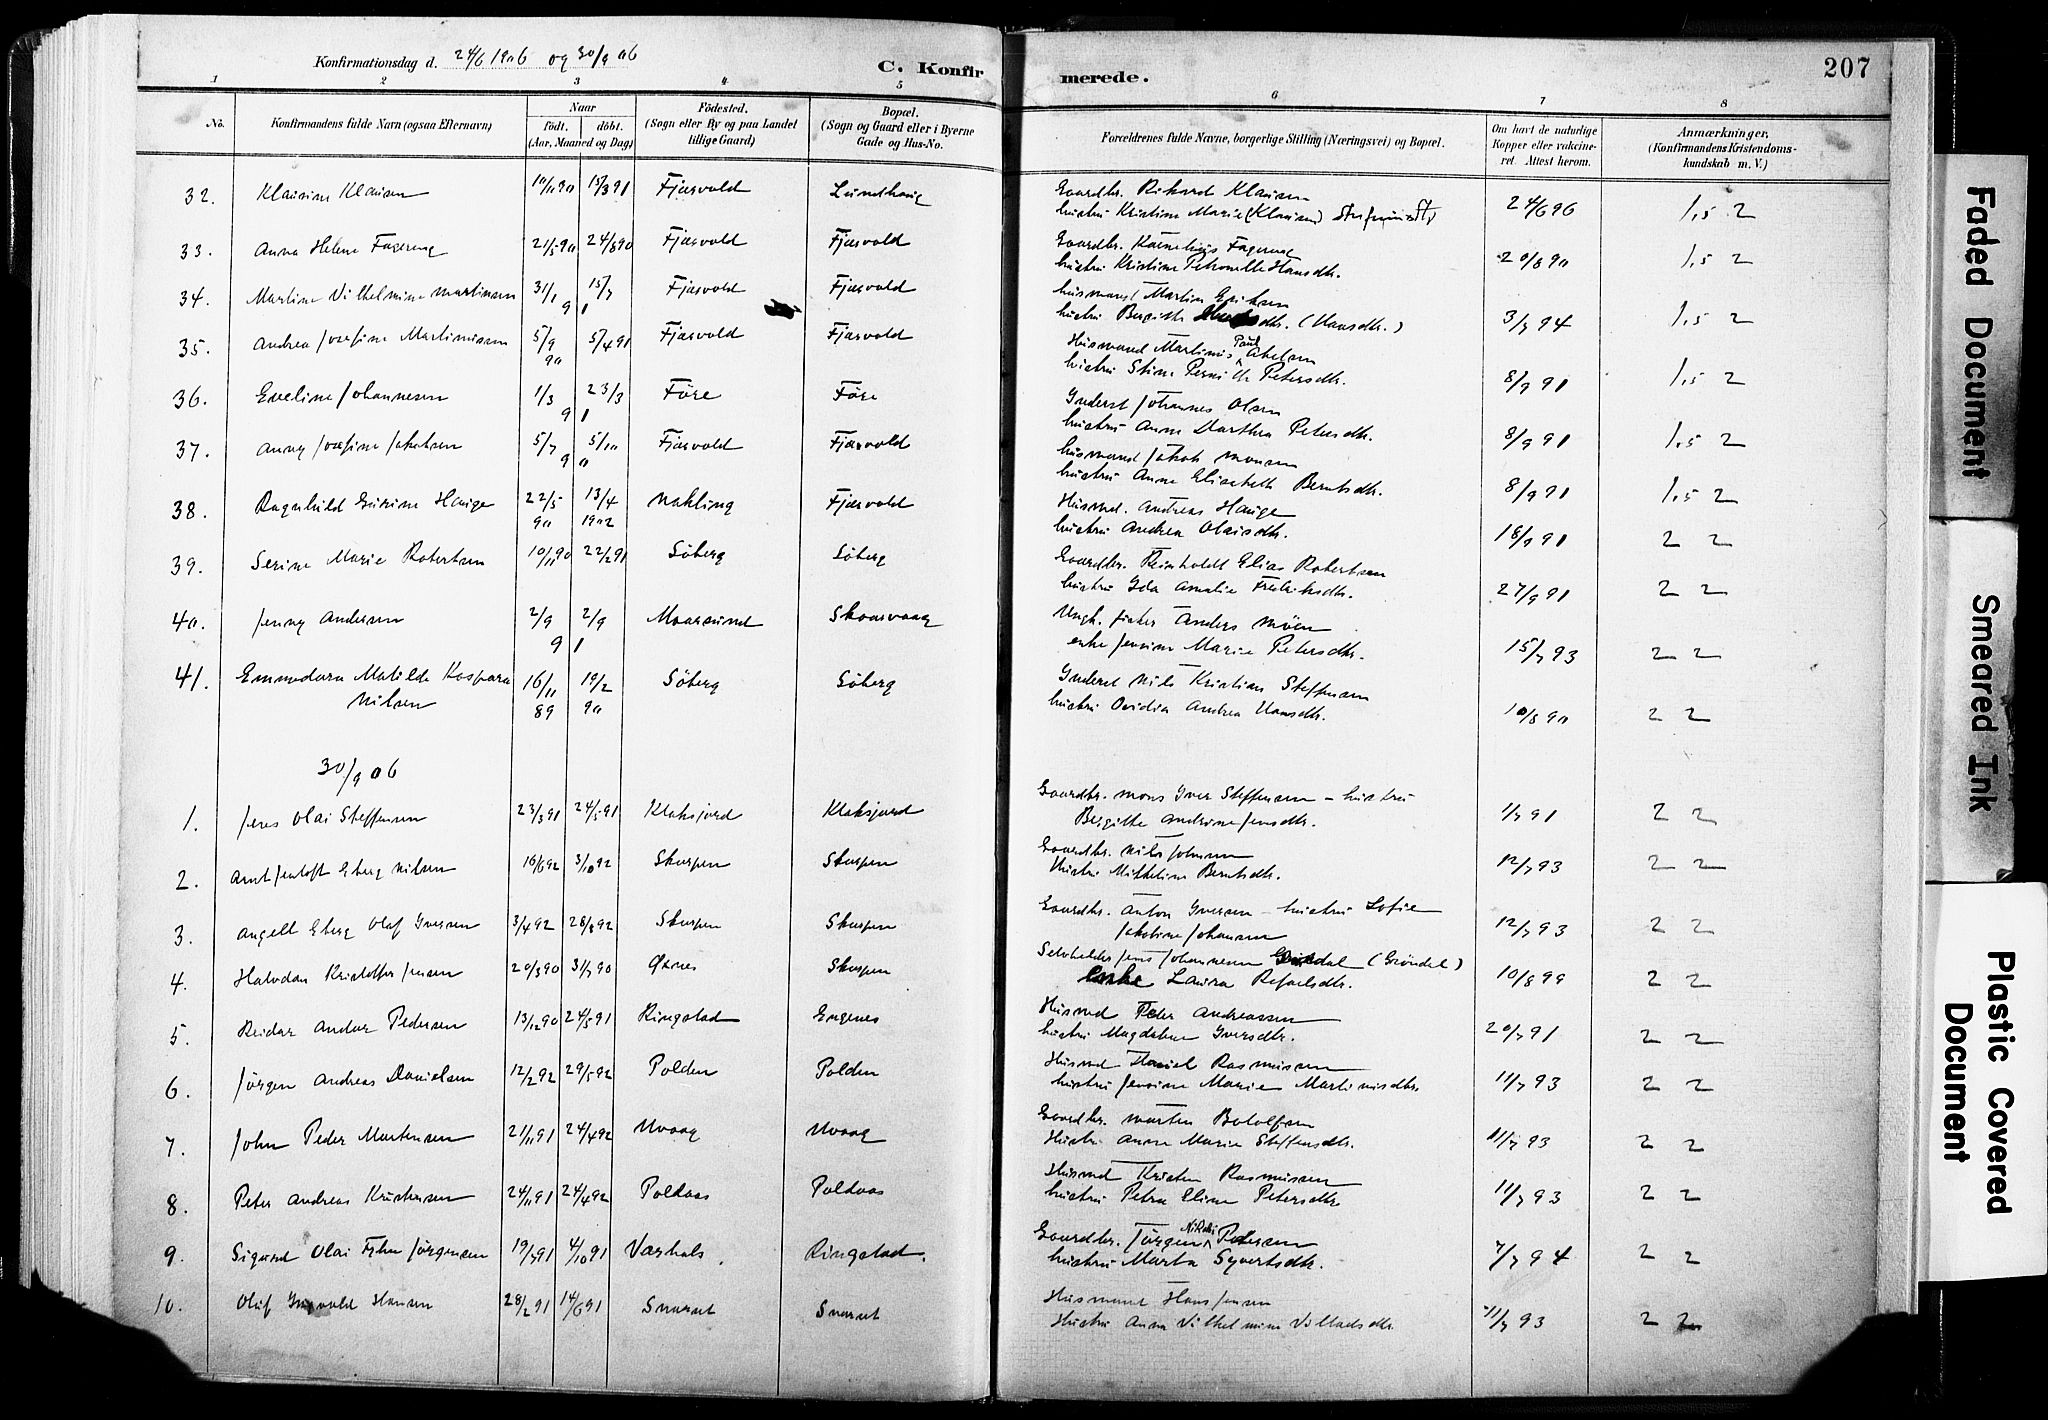 Konfirmationsdag d. 24/6 1906 og 30/9 06
C. Konfirmerede.
207
1 2 3 4 5 6 7 8
No.
Konfirmandens fulde Navn (ogsaa Efternavn)
Naar
födt. döbt.
(Aar, Maaned og Dag)
Födested.
(Sogn eller By og paa Landet
tillige Gaard)
Bopæl.
(Sogn og Gaard eller i Byerne
Gade og Hus-No.
Forældrenes fulde Navne, borgerlige Stilling (Næringsvei) og Bopæl.
Om havt de naturlige
Kopper eller vakcine-
ret. Attest herom.
Anmærkninger,
(Konfirmandens Kristendoms-
kundskab m. V.)
32. Klausine Klausen 10/11 90 15/3 91 Fjærvold Lundhaug Gaardbr. Rikard Klausen
hustru Kristine Marie (Klausen) 24/6 96 1,5 2
33. Anna Helene Fagereng 21/5 90 24/8 90 Fjærvold Fjærvold Gaardbr. Kornelius Fagereng
hustru Kristine Petronelle Hansdtr. 20/8 90 1,5 2
34. Martine Vilhelmine Martinsen 31/1 15/7 91 Fjærvold Fjærvold husmand Martin Eriksen
hustru Bergitte dtr. (Hansdtr.) 3/7 94 1,5 2
35. Andrea Josefine Martinissen 5/9 90 5/4 91 Fjærvold Fjærvold Husmand Martinus Paul Abelsen
hustru Stine Pernille Petersdtr. 8/9 91 1,5 2
36. Eveline Johannesen 1/3 23/3 91 Føre Føre Inderst Johannes Olsen
hustru Anne Darthea Petersdtr. 8/9 91 1,5 2
37. Anny Josefine Jakobsen 5/7 5/10 90 Fjærvold Fjærvold husmand Jakob Monsen
hustru Anne Elisabeth Berntsdtr. 8/9 91 1,5 2
38. Ragnhild Gurine Hauge 22/5 90 13/4 1902 Makling Fjærvold Husmd. Andreas Hauge
hustru Andrea Olaisdtr. 18/9 91 2 2
39. Serine Marie Robertsen 10/11 90 22/2 91 Söberg Söberg Gaardbr. Reinholdt Elias Robertsen
hustru Ida Amalie Fredriksdtr. 27/9 91 2 2
40. Jenny Andersen 2/9 2/9 91 Maarsund Skaarvaag Ungk. fisker Anders Möen
enke Jensine Marie Petersdtr. 15/7 93 2 2
41. Emmedora Matilde Kaspara
Nilsen 16/11 89 19/2 90 Söberg Söberg Inderst Nils Kristian Steffensen
hustru Ovidia Andrea Hansdtr. 10/8 90 2 2
30/9 06
1. Jens Olai Steffensen 23/3 91 24/5 91 Klaksjord Klaksjord Gaardbr. Mons Iver Steffensen - hustru
Bergitte Andrine Jensdtr. 1/7 91 2 2
2. Arnt Jentoft Eberg Nilsen 16/6 92 3/10 92 Skorpen Skorpen Gaardbr. Nils Johnsen
Hustru Mikkeline Berntsdtr. 12/7 93 2 2
3. Angell Eberg Olaf Iversen 3/4 92 28/8 92 Skorpen Skorpen Gaardbr. Anton Iversen - hustru Sofie
Jakobine Johansen 12/7 93 2 2
4. Halvdan Kristoffer Jensen 20/3 90 31/7 90 Öksnes Skorpen Selveeier Jens Johannesen (Gröndal)
enke Laura Refaelsdtr. 10/8 99 2 2
5. Reidar Andor Pedersen 13/12 90 24/5 91 Ringstad Engenes Husmd Peter Andreassen
hustru Magdalene Iversdtr. 20/7 91 2 2
6. Jörgen Andreas Danielsen 12/2 92 29/5 92 Polden Polden Husmd Daniel Rasmussen
hustru Jensine Marie Martinusdtr. 11/7 93 2 2
7. John Peder Martensen 21/11 91 24/4 92 Uvaag Uvaag Gaardbr. Marten Botolfsen
Hustru Anne Marie Steffensdtr. 11/7 93 2 2
8. Peter Andreas Kristensen 24/11 91 24/4 92 Poldaas Poldaas Husmd Kristen Rasmussen
hustru Petra Eline Petersdtr 11/7 93 2 2
9. Sigurd Olai Jörgensen 19/7 91 4/10 91 Værhals Ringstad. Gaardbr. Jörgen Nikolai Petersen
hustru Marta Syvertsdtr. 7/7 94 2 2
10. Oluf Ingvald Hansen 28/2 91 14/6 91 Snarset Snarset Husmand Hans Jensen
Hustru Anna Vilhelmine Villadsdtr. 11/7 93 2 2
Faded Document
Smeared Ink
Plastic Covered
Document